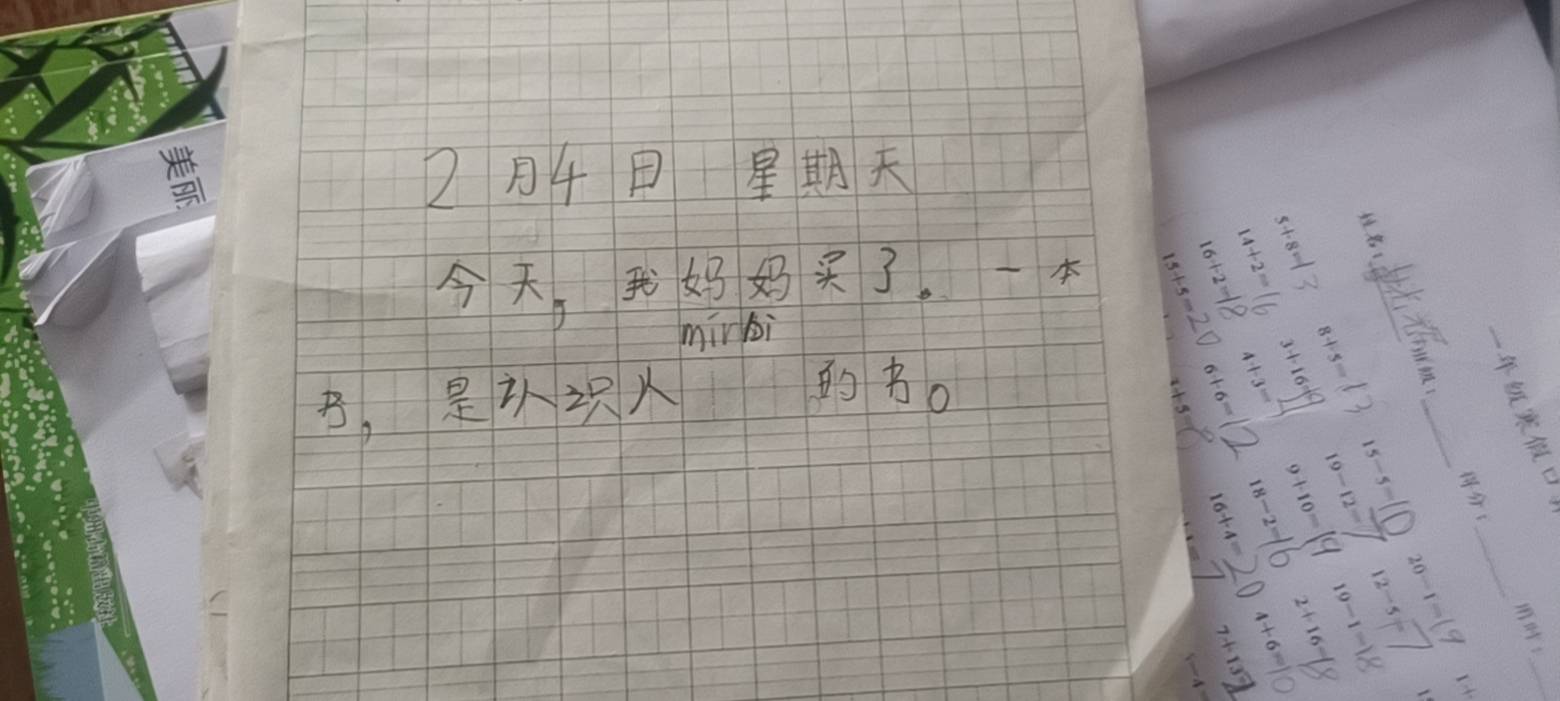 2月4日 星期天
今天，我妈妈买了。一本
mínbǐ
书，是认识人 的书。
美丽
一年级寒假口
得分：
用时：
5+8=13
8+5=13
15-5=10
20-1=19
14+2=16
3+16=19
19-12=7
12-5=7
16+2=18
4+3=7
9+10=19
19-1=18
15+5=20
6+6=12
18-2=16
2+16=18
16+4=20
4+6=10